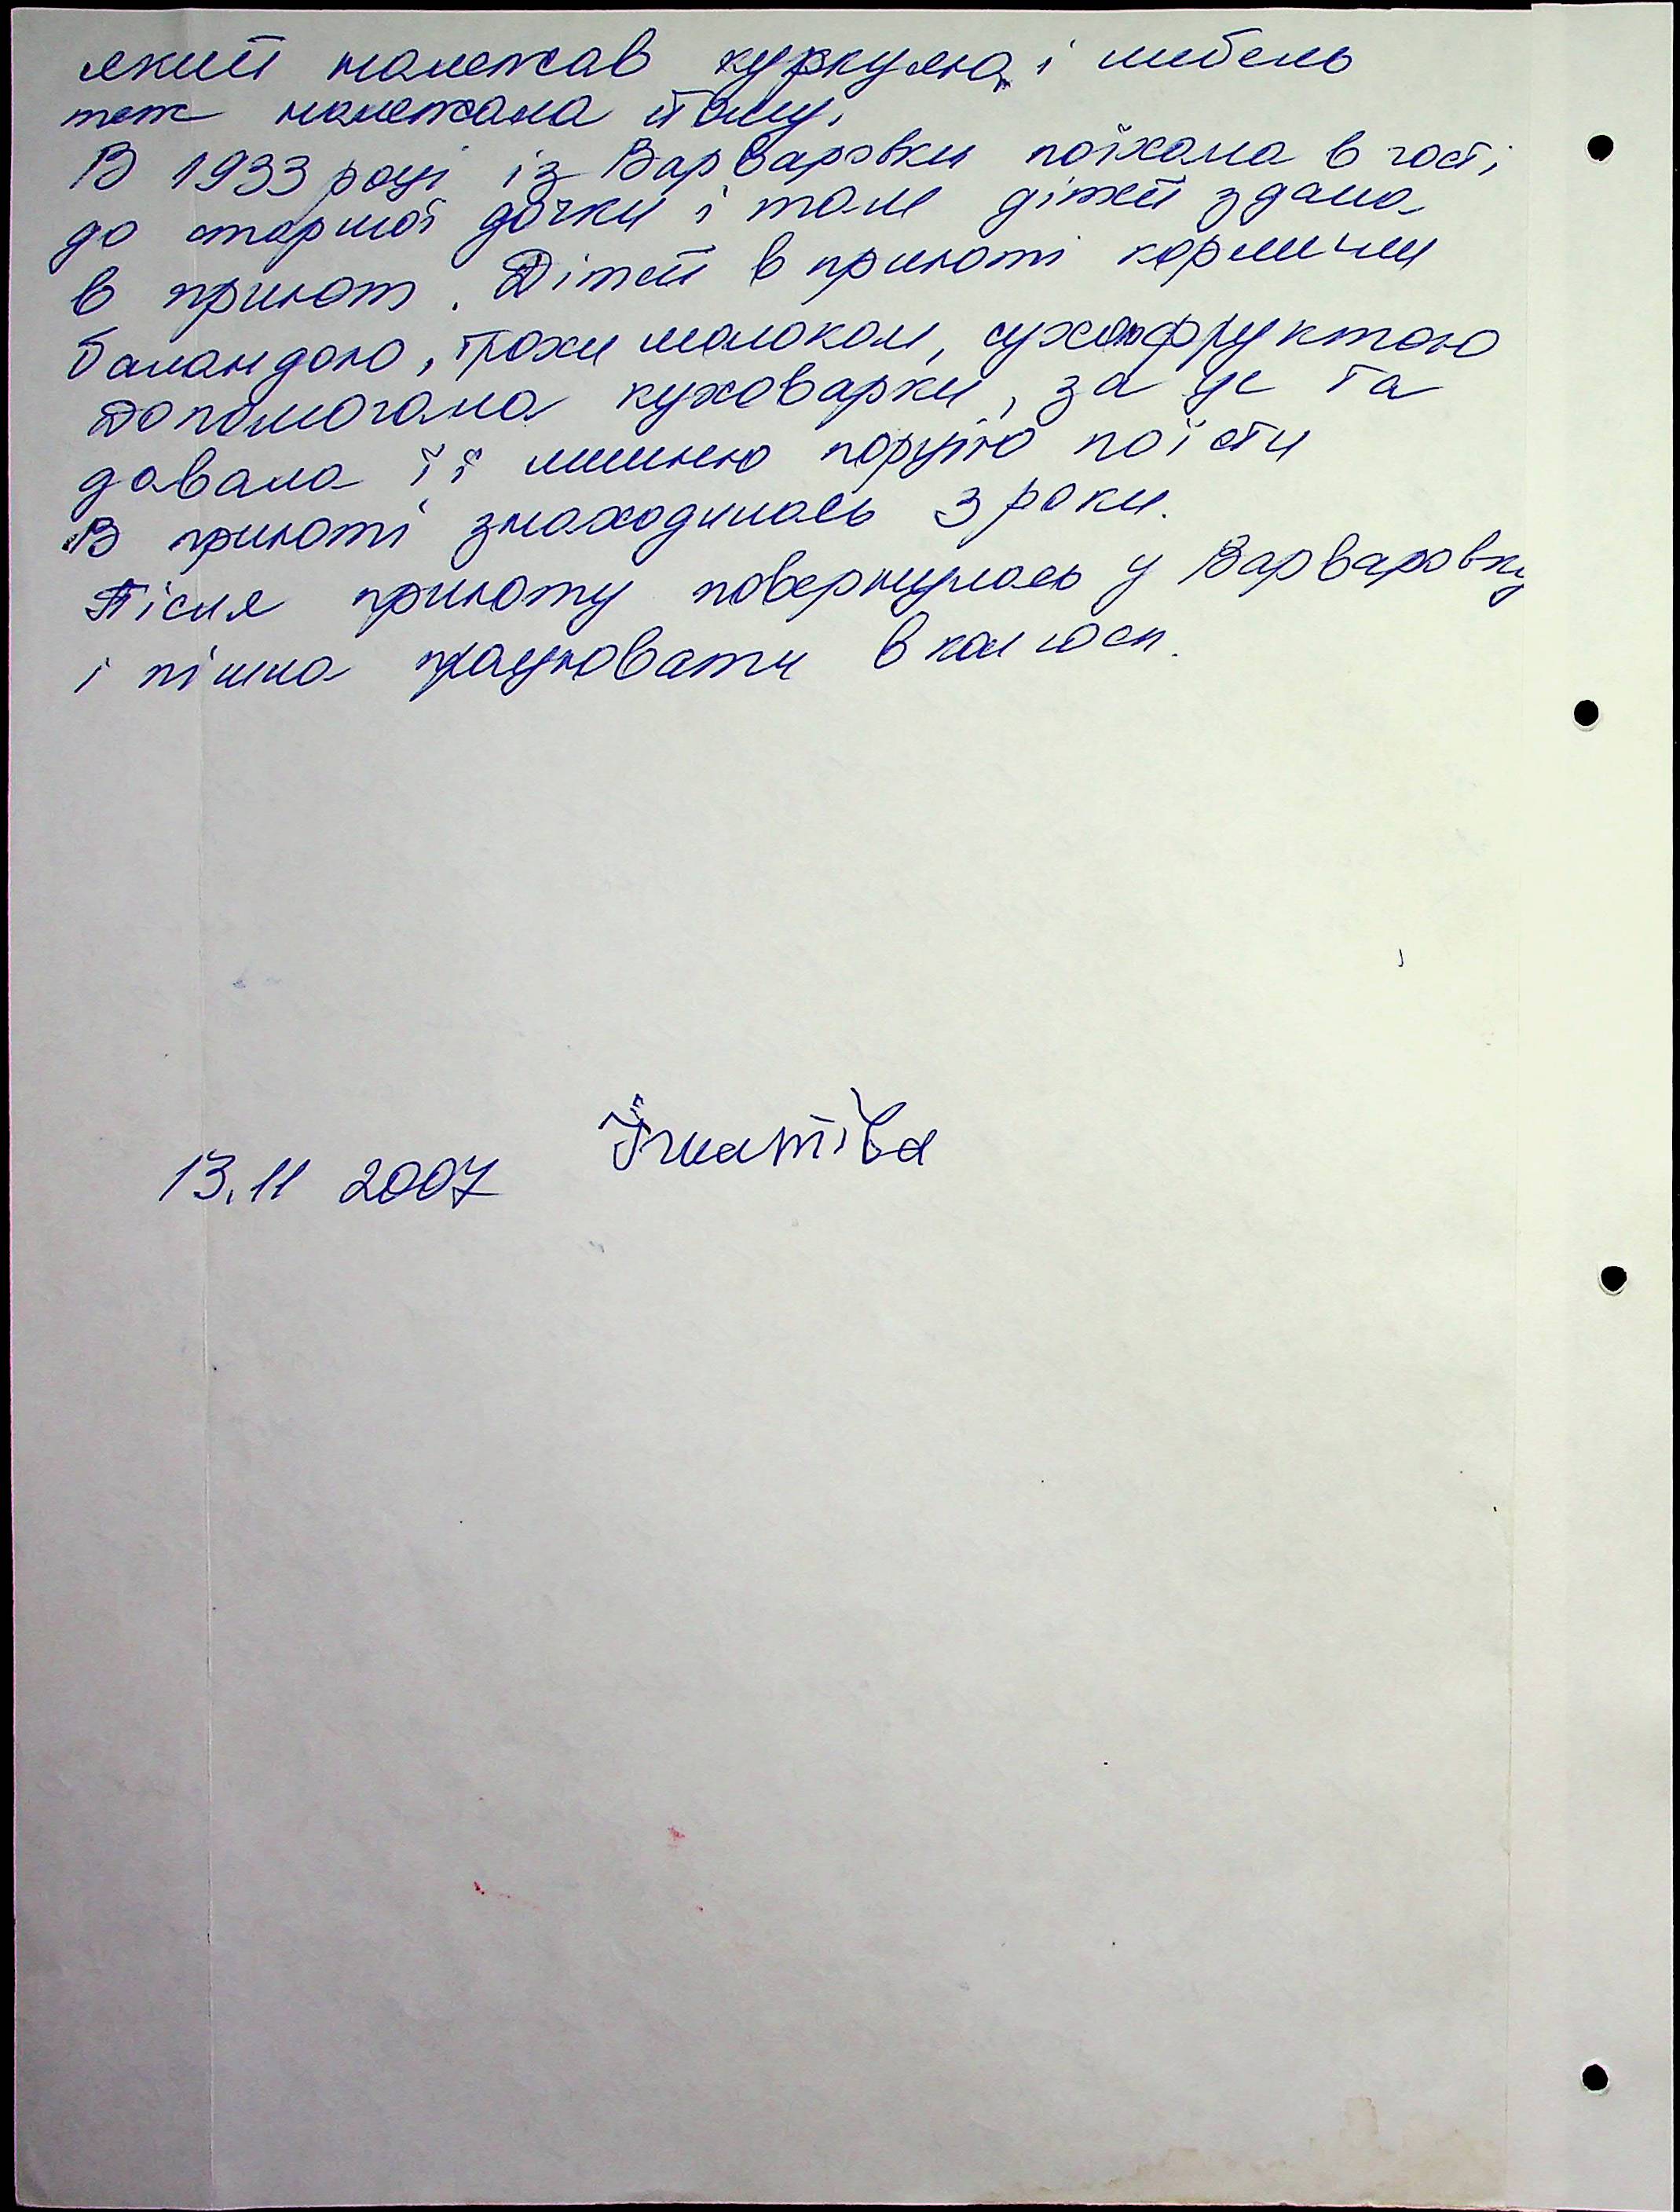 який належав куркулю, і мебель
теж належала йому.
В 1933 році із Варваровки поїхала в гості
до старшої дочки і там дітей здала
в приют. Дітей в приюті кормили
баландою, трохи молоком, сухофруктою
Допомогала куховарки, за це та
давала її лишню порцію поїсти
В приюті знаходилась 3 роки.
Після приюту повернулась у Варваровку
і пішла працювати в колгосп.
13.11 2007 Ігнатієва